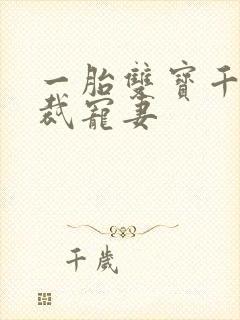 一胎雙寶千
裁寵妻
千歲